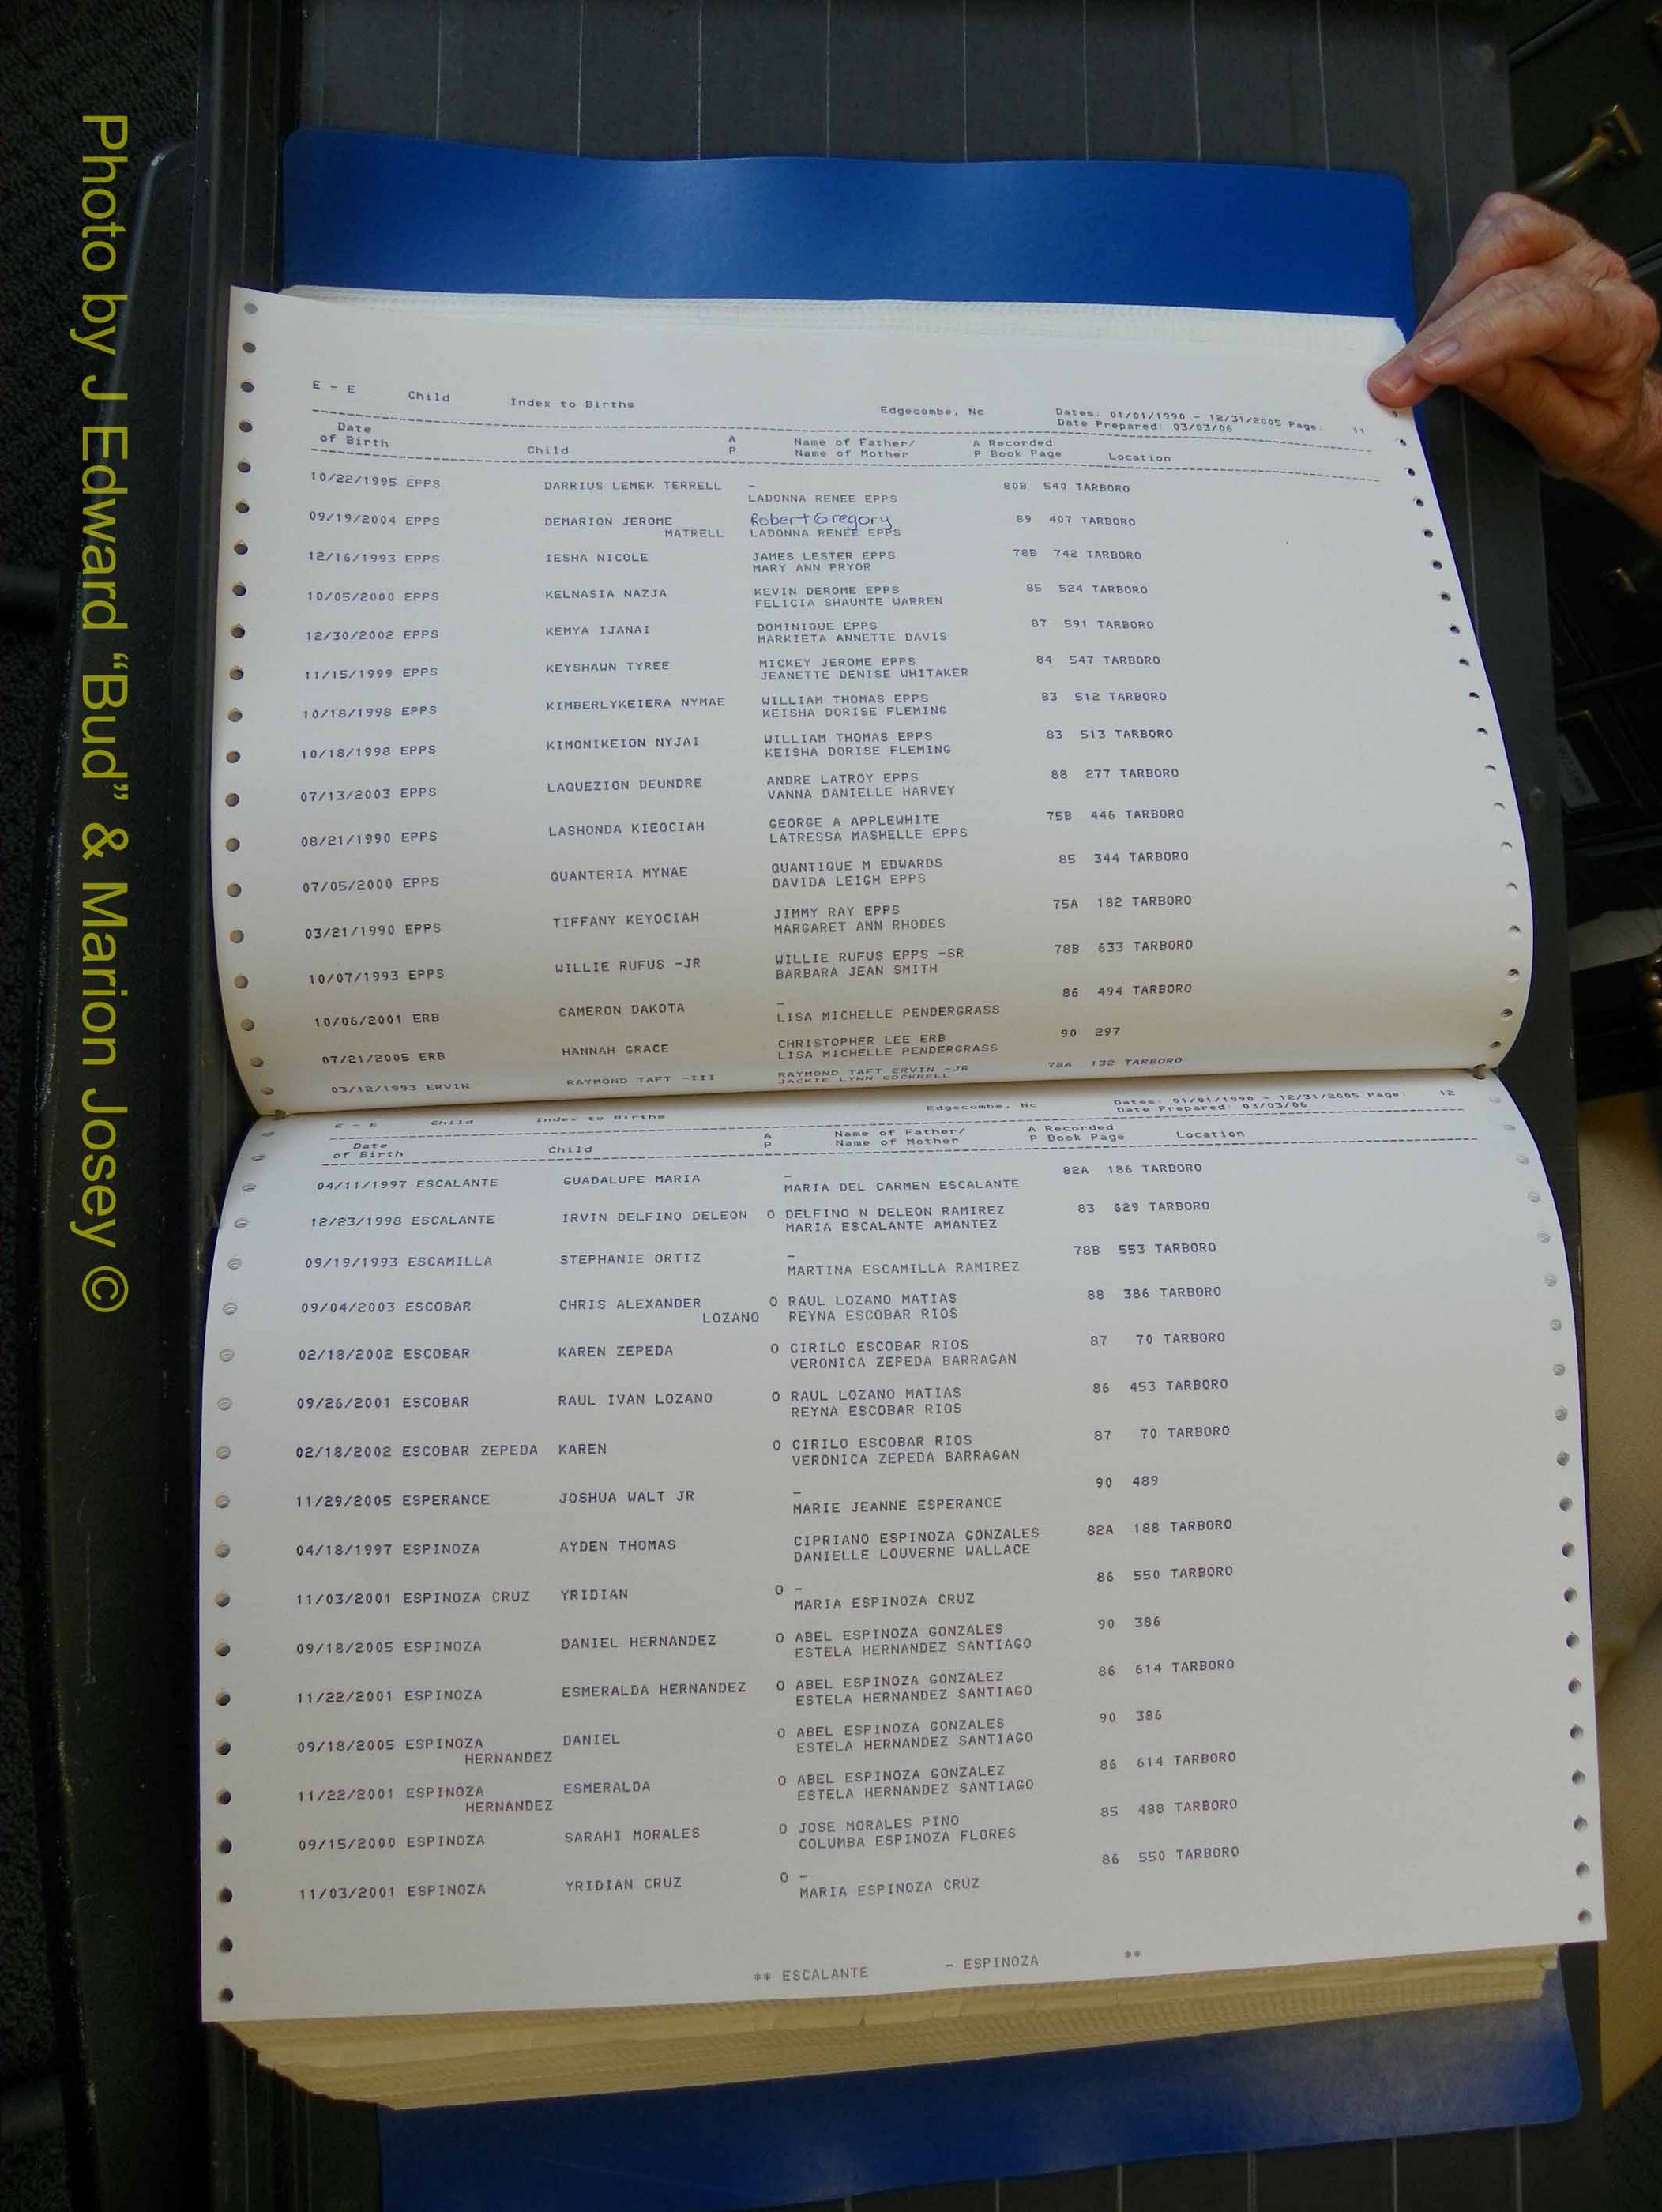 E - E Child Index to Births Edgecombe, Nc Dates: 01/01/1990 - 12/31/2005 Page: 11
Date Prepared: 03/03/06
Date A Name of Father/ A Recorded
of Birth Child P Name of Mother P Book Page Location
10/22/1995 EPPS DARRIUS LEMEK TERRELL - 80B 540 TARBORO
LADONNA RENEE EPPS
09/19/2004 EPPS DEMARION JEROME Robert Gregory 89 407 TARBORO
MATRELL LADONNA RENEE EPPS
12/16/1993 EPPS IESHA NICOLE JAMES LESTER EPPS 78B 742 TARBORO
MARY ANN PRYOR
10/05/2000 EPPS KELNASIA NAZJA KEVIN DEROME EPPS 85 524 TARBORO
FELICIA SHAUNTE WARREN
12/30/2002 EPPS KEMYA IJANAI DOMINIQUE EPPS 87 591 TARBORO
MARKIETA ANNETTE DAVIS
11/15/1999 EPPS KEYSHAWN TYREE MICKEY JEROME EPPS 84 547 TARBORO
JEANETTE DENISE WHITAKER
10/18/1998 EPPS KIMBERLYKEIERA NYMAE WILLIAM THOMAS EPPS 83 512 TARBORO
KEISHA DORISE FLEMING
10/18/1998 EPPS KIMONIKEION NYJAI WILLIAM THOMAS EPPS 83 513 TARBORO
KEISHA DORISE FLEMING
07/13/2003 EPPS LAQUEZION DEUNDRE ANDRE LATROY EPPS 88 277 TARBORO
VANNA DANIELLE HARVEY
08/21/1990 EPPS LASHONDA KIEOCIAH GEORGE A APPLEWHITE 75B 446 TARBORO
LATRESSA MASHELLE EPPS
07/05/2000 EPPS QUANTERIA MYNAE QUANTIQUE M EDWARDS 85 344 TARBORO
DAVIDA LEIGH EPPS
03/21/1990 EPPS TIFFANY KEYOCIAH JIMMY RAY EPPS 75A 182 TARBORO
MARGARET ANN RHODES
10/07/1993 EPPS WILLIE RUFUS -JR WILLIE RUFUS EPPS -SR 78B 633 TARBORO
BARBARA JEAN SMITH
10/06/2001 ERB CAMERON DAKOTA - 86 494 TARBORO
LISA MICHELLE PENDERGRASS
07/21/2005 ERB HANNAH GRACE CHRISTOPHER LEE ERB 90 297
LISA MICHELLE PENDERGRASS
03/12/1993 ERVIN RAYMOND TAFT -III RAYMOND TAFT ERVIN -JR 78A 132 TARBORO
JACKIE LYNN COCKRELL
E - E Child Index to Births Edgecombe, Nc Dates: 01/01/1990 - 12/31/2005 Page: 12
Date Prepared: 03/03/06
Date A Name of Father/ A Recorded
of Birth Child P Name of Mother P Book Page Location
04/11/1997 ESCALANTE GUADALUPE MARIA - 82A 186 TARBORO
MARIA DEL CARMEN ESCALANTE
12/23/1998 ESCALANTE IRVIN DELFINO DELEON O DELFINO N DELEON RAMIREZ 83 629 TARBORO
MARIA ESCALANTE AMANTEZ
09/19/1993 ESCAMILLA STEPHANIE ORTIZ - 78B 553 TARBORO
MARTINA ESCAMILLA RAMIREZ
09/04/2003 ESCOBAR CHRIS ALEXANDER O RAUL LOZANO MATIAS 88 386 TARBORO
LOZANO REYNA ESCOBAR RIOS
02/18/2002 ESCOBAR KAREN ZEPEDA O CIRILO ESCOBAR RIOS 87 70 TARBORO
VERONICA ZEPEDA BARRAGAN
09/26/2001 ESCOBAR RAUL IVAN LOZANO O RAUL LOZANO MATIAS 86 453 TARBORO
REYNA ESCOBAR RIOS
02/18/2002 ESCOBAR ZEPEDA KAREN O CIRILO ESCOBAR RIOS 87 70 TARBORO
VERONICA ZEPEDA BARRAGAN
11/29/2005 ESPERANCE JOSHUA WALT JR - 90 489
MARIE JEANNE ESPERANCE
04/18/1997 ESPINOZA AYDEN THOMAS CIPRIANO ESPINOZA GONZALES 82A 188 TARBORO
DANIELLE LOUVERNE WALLACE
11/03/2001 ESPINOZA CRUZ YRIDIAN O - 86 550 TARBORO
MARIA ESPINOZA CRUZ
09/18/2005 ESPINOZA DANIEL HERNANDEZ O ABEL ESPINOZA GONZALES 90 386
ESTELA HERNANDEZ SANTIAGO
11/22/2001 ESPINOZA ESMERALDA HERNANDEZ O ABEL ESPINOZA GONZALEZ 86 614 TARBORO
ESTELA HERNANDEZ SANTIAGO
09/18/2005 ESPINOZA DANIEL O ABEL ESPINOZA GONZALES 90 386
HERNANDEZ ESTELA HERNANDEZ SANTIAGO
11/22/2001 ESPINOZA ESMERALDA O ABEL ESPINOZA GONZALEZ 86 614 TARBORO
HERNANDEZ ESTELA HERNANDEZ SANTIAGO
09/15/2000 ESPINOZA SARAHI MORALES O JOSE MORALES PINO 85 488 TARBORO
COLUMBA ESPINOZA FLORES
11/03/2001 ESPINOZA YRIDIAN CRUZ O - 86 550 TARBORO
MARIA ESPINOZA CRUZ
** ESCALANTE - ESPINOZA **
Photo by J Edward "Bud" & Marion Josey ©